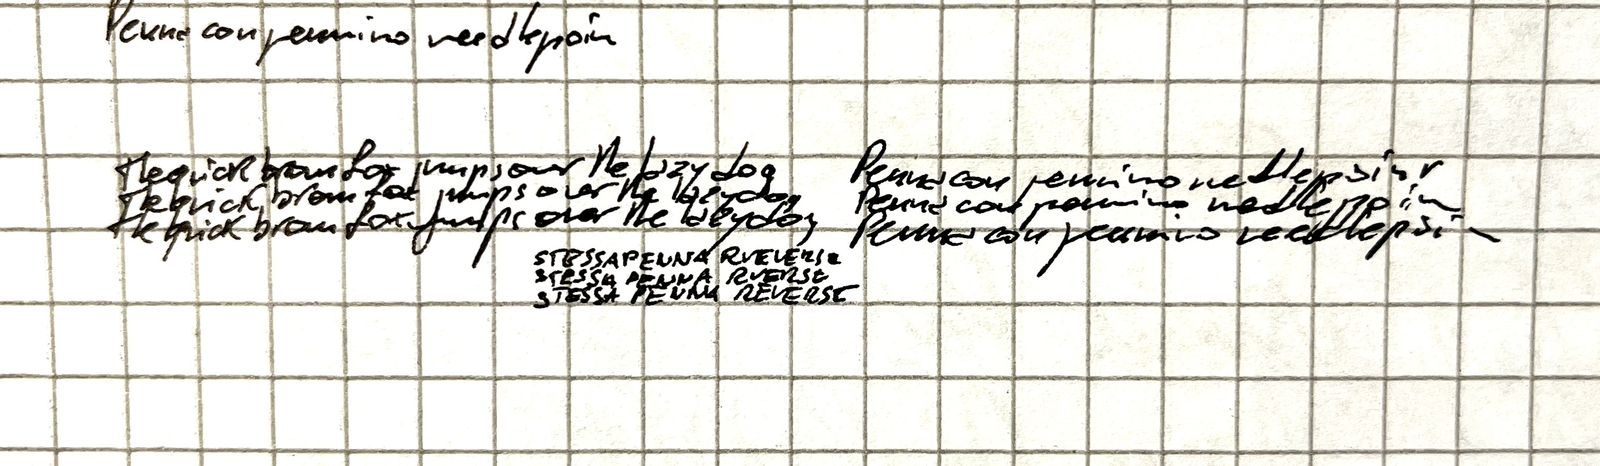 Penna con pennino needlepoin
The quick brown fox jumps over the lazy dog
The quick brown fox jumps over the lazy dog
The quick brown fox jumps over the lazy dog
Penna con pennino needlepoint
Penna con pennino needlepoin
Penna con pennino needlepoin
STESSA PENNA RVEVERSE
STESSA PENNA RVERSE
STESSA PENNA REVERSE